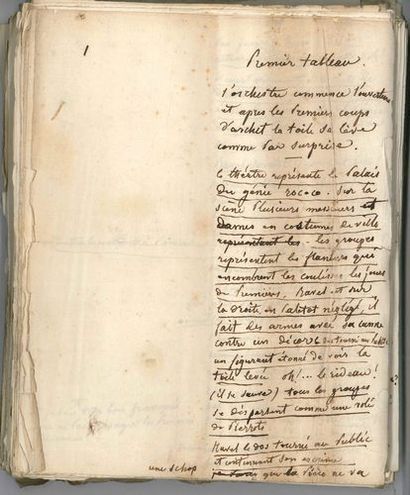 1
Premier tableau.
L'orchestre commence l'ouverture
et après les premiers coups
d'archet la toile se lève
comme par surprise.
Le théâtre représente le Palais
du génie rococo. Sur la
scène Plusieurs messieurs et
Dames en costumes de ville
représentant les. les groupes
représentent les flaneurs qui
encombrent les coulisses les jours
de Premières, Ravel est sur
la droite en Paletot négligé, il
fait des armes avec sa canne
contre un décor
un figurant étonné de voir la
toile levée oh!... le rideau!
(il se sauve) tous les groupes
se dispersent comme une volée
de Pierrots
Ravel le dos tourné au Public
et continuant son escrime
que la Pièce ne va
une schop